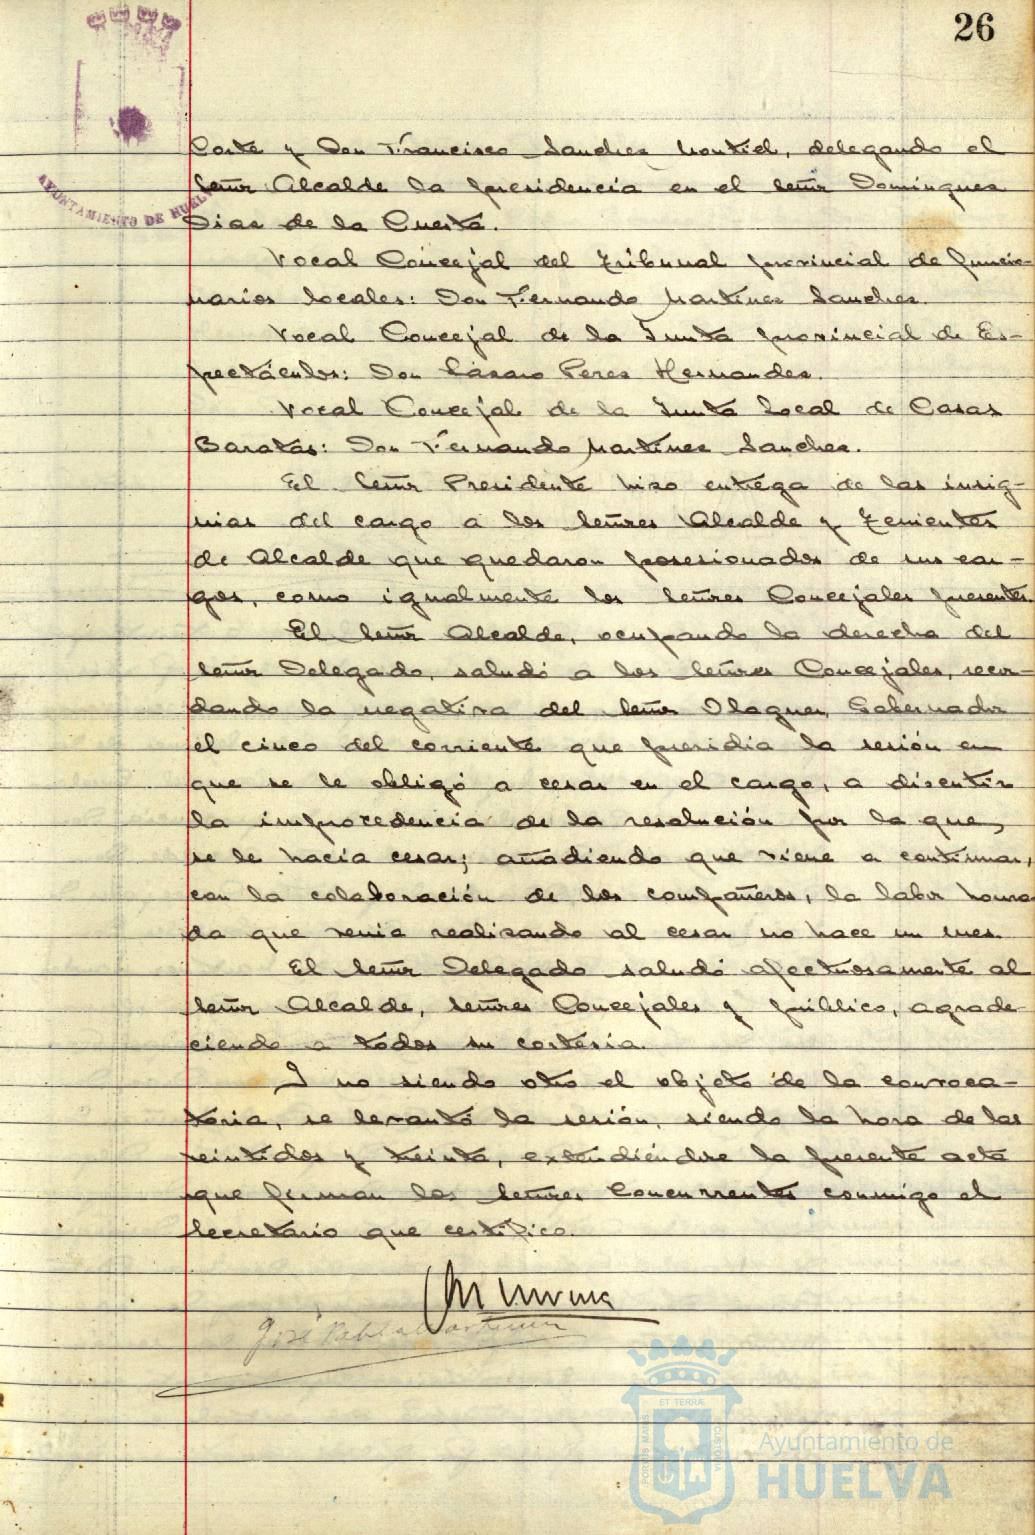 26
AYUNTAMIENTO DE HUELVA
Corte y Don Francisco Sanchez Montiel, delegando el
Señor Alcalde la presidencia en el señor Dominguez
Dias de la Cuesta.
Vocal Concejal del Tribunal provincial de funcio-
narios locales: Don Fernando Martinez Sanchez.
Vocal Concejal de la Junta provincial de Es-
pectáculos: Don Lázaro Perez Hernandez.
Vocal Concejal de la Junta Local de Casas
Baratas: Don Fernando Martinez Sanchez.
El Señor Presidente hizo entrega de las insig-
nias del cargo a los señores Alcalde y Tenientes
de Alcalde que quedaron posesionados de sus car-
gos, como igualmente los señores Concejales presentes.
El Señor Alcalde, ocupando la derecha del
señor Delegado, saludó a los señores Concejales, recor-
dando la negativa del señor Olaguer, Gobernador
el cinco del corriente que presidia la sesión en
que se le obligó a cesar en el cargo, a discutir
la improcedencia de la resolución por la que
se le hacía cesar; añadiendo que viene a continuar,
con la colaboración de los compañeros, la labor honra
da que venia realizando al cesar no hace un mes.
El señor Delegado saludó afectuosamente al
señor Alcalde, señores Concejales y público, agrade
ciendo a todos su cortesia.
Y no siendo otro el objeto de la convoca-
toria, se levantó la sesión, siendo la hora de las
veintidos y treinta, extendiéndose la presente acta
que firman los señores concurrentes conmigo el
Secretario que certifico.
José Pablo Martinez
ET TERRÆ
PORTUS MARIS
CUSTODIA
Ayuntamiento de
HUELVA